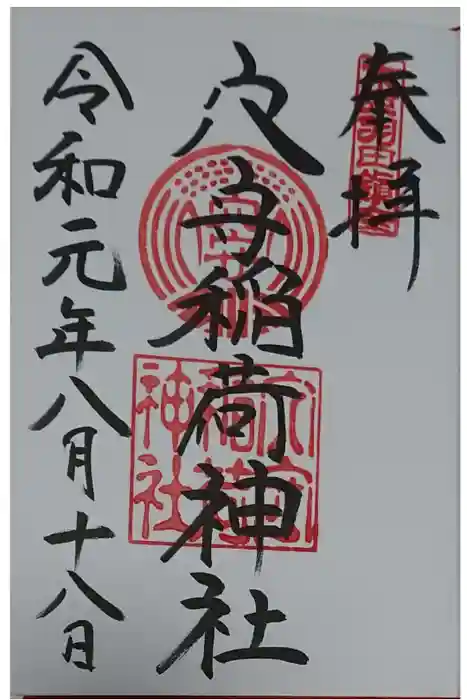 奉拝
穴守稲荷神社
令和元年八月十八日
穴守
稲荷
神社